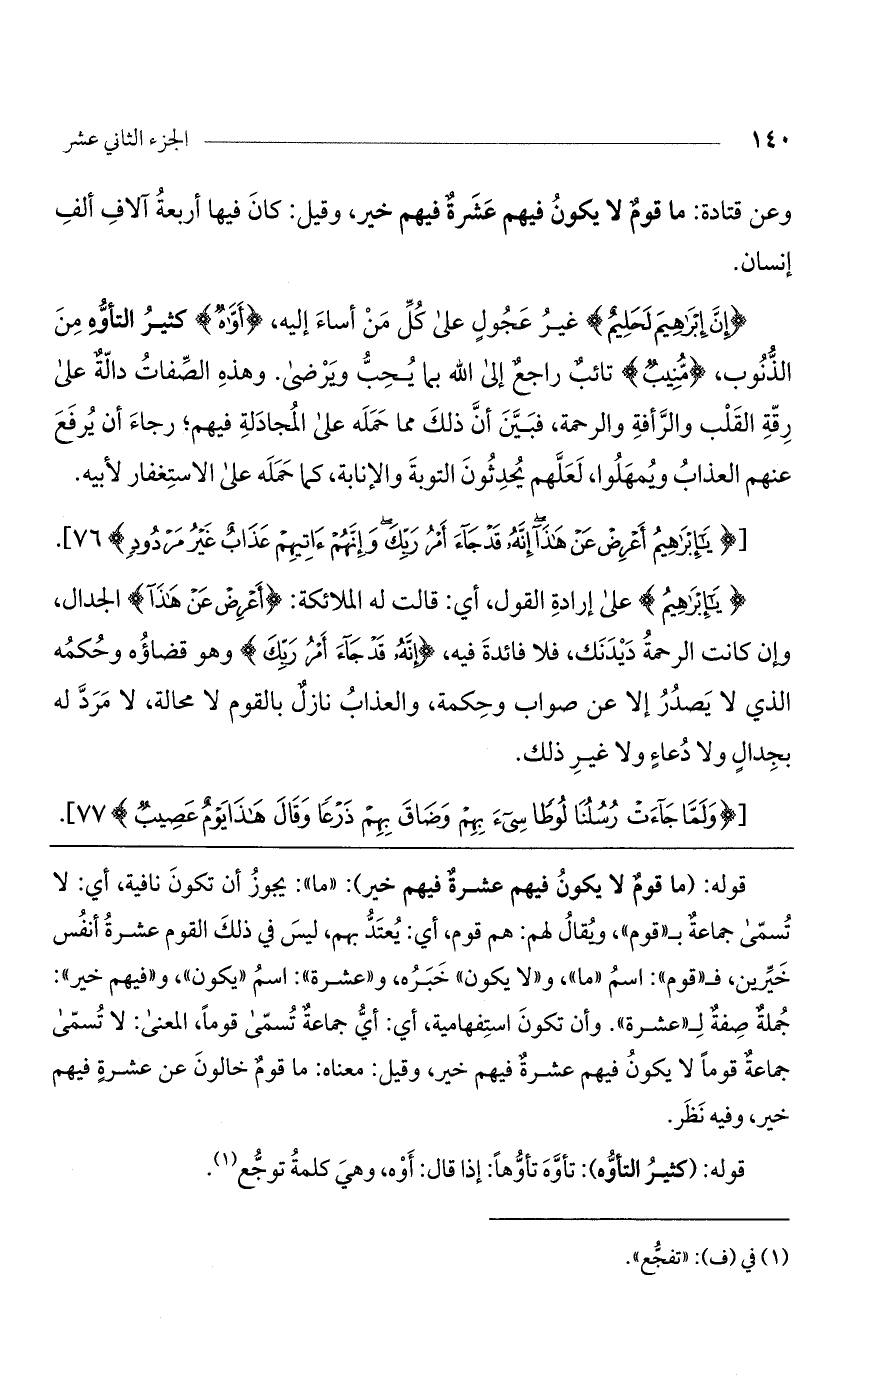 ١٤٠ الجزء الثاني عشر
وعن قتادة: ما قومٌ لا يكونُ فيهم عَشَرةٌ فيهم خير، وقيل: كانَ فيها أربعةُ آلافِ ألفِ
إنسان.
﴿إِنَّ إِبْرَٰهِيمَ لَحَلِيمٌ﴾ غيرُ عَجُولٍ علىٰ كُلِّ مَنْ أساءَ إليه، ﴿أَوَّٰهٌ﴾ كثيرُ التأوُّهِ مِنَ
الذُّنُوب، ﴿مُّنِيبٌ﴾ تائبٌ راجعٌ إلىٰ الله بما يُحِبُّ ويَرْضىٰ. وهذهِ الصِّفاتُ دالّةٌ علىٰ
رِقّةِ القَلْب والرَّأفةِ والرحمة، فبَيَّنَ أنَّ ذلكَ مما حَمَلَه علىٰ المُجادَلةِ فيهم؛ رجاءَ أن يُرفَعَ
عنهم العذابُ ويُمهَلُوا، لَعَلَّهم يُحدِثُونَ التوبةَ والإنابة، كما حَمَلَه علىٰ الاستِغفار لأبيه.
[﴿يَٰٓإِبْرَٰهِيمُ أَعْرِضْ عَنْ هَٰذَآ إِنَّهُۥ قَدْ جَآءَ أَمْرُ رَبِّكَ وَإِنَّهُمْ ءَاتِيهِمْ عَذَابٌ غَيْرُ مَرْدُودٍ﴾ ٧٦].
﴿يَٰٓإِبْرَٰهِيمُ﴾ علىٰ إرادةِ القول، أي: قالت له الملائكة: ﴿أَعْرِضْ عَنْ هَٰذَآ﴾ الجدال،
وإن كانت الرحمةُ دَيْدَنَك، فلا فائدةَ فيه، ﴿إِنَّهُۥ قَدْ جَآءَ أَمْرُ رَبِّكَ﴾ وهو قضاؤُه وحُكمُه
الذي لا يَصدُرُ إلا عن صواب وحِكمة، والعذابُ نازلٌ بالقوم لا محالة، لا مَرَدَّ له
بجِدالٍ ولا دُعاءٍ ولا غيرِ ذلك.
[﴿وَلَمَّا جَآءَتْ رُسُلُنَا لُوطًا سِىٓءَ بِهِمْ وَضَاقَ بِهِمْ ذَرْعًا وَقَالَ هَٰذَا يَوْمٌ عَصِيبٌ﴾ ٧٧].
قوله: (ما قومٌ لا يكونُ فيهم عشرةٌ فيهم خير): «ما»: يجوزُ أن تكونَ نافية، أي: لا
تُسمّىٰ جماعةٌ بـ«قوم»، ويُقالُ لهم: هم قوم، أي: يُعتَدُّ بهم، ليسَ في ذلكَ القوم عشرةُ أنفُس
خَيِّرين، فـ«قوم»: اسمُ «ما»، و«لا يكون» خَبَرُه، و«عشرة»: اسمُ «يكون»، و«فيهم خير»:
جُملةٌ صِفةٌ لِـ«عشرة». وأن تكونَ استِفهامية، أي: أيُّ جماعةٌ تُسمّىٰ قوماً، المعنىٰ: لا تُسمّىٰ
جماعةٌ قوماً لا يكونُ فيهم عشرةٌ فيهم خير، وقيل: معناه: ما قومٌ خالونَ عن عشرةٍ فيهم
خير، وفيه نَظَر.
قوله: (كثيرُ التأوُّه): تأوَّهَ تأوُّهاً: إذا قال: أَوْه، وهيَ كلمةُ توجُّع(١).
(١) في (ف): «تفجُّع».